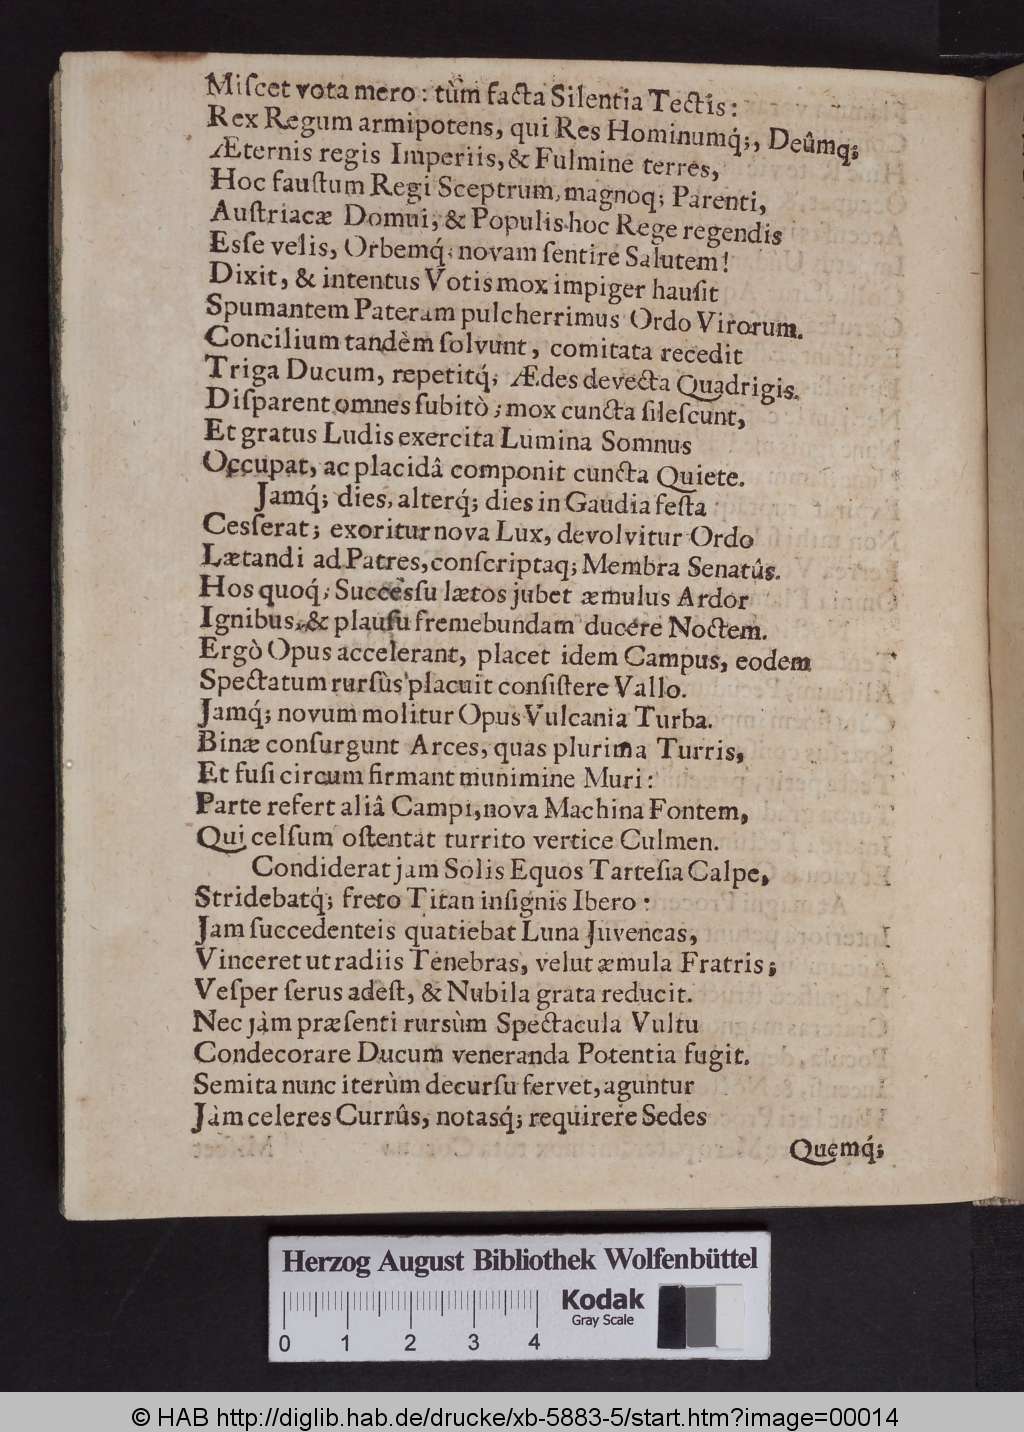 Miſcet vota mero: tùm facta Silentia Tectis:
Rex Regum armipotens, qui Res Hominumq́;, Deûmq;
Æternis regis Imperiis, & Fulmine terres,
Hoc fauſtum Regi Sceptrum, magnoq; Parenti,
Auſtriacæ Domui, & Populis hoc Rege regendis
Eſſe velis, Orbemq́; novam ſentire Salutem!
Dixit, & intentus Votis mox impiger hauſit
Spumantem Pateram pulcherrimus Ordo Virorum.
Concilium tandèm ſolvunt, comitata recedit
Triga Ducum, repetitq́; Ædes devecta Quadrigis.
Diſparent omnes ſubitò; mox cuncta ſileſcunt,
Et gratus Ludis exercita Lumina Somnus
Occupat, ac placidâ componit cuncta Quiete.
Jamq́; dies, alterq́; dies in Gaudia feſta
Ceſſerat; exoritur nova Lux, devolvitur Ordo
Lætandi ad Patres, conſcriptaq; Membra Senatûs.
Hos quoq́; Succeſſu lætos jubet æmulus Ardor
Ignibus, & plauſu fremebundam ducere Noctem.
Ergò Opus accelerant, placet idem Campus, eodem
Spectatum rurſùs placuit conſiſtere Vallo.
Jamq́; novum molitur Opus Vulcania Turba.
Binæ conſurgunt Arces, quas plurima Turris,
Et fuſi circum firmant munimine Muri:
Parte refert aliâ Campi, nova Machina Fontem,
Qui celſum oſtentat turrito vertice Culmen.
Condiderat jam Solis Equos Tarteſia Calpe,
Stridebatq́; freto Titan inſignis Ibero:
Jam ſuccedenteis quatiebat Luna Juvencas,
Vinceret ut radiis Tenebras, velut æmula Fratris;
Veſper ſerus adeſt, & Nubila grata reducit.
Nec jàm præſenti rurſùm Spectacula Vultu
Condecorare Ducum veneranda Potentia fugit.
Semita nunc iterùm decurſu fervet, aguntur
Jàm celeres Currûs, notasq́; requirere Sedes
Quemq́;
Herzog August Bibliothek Wolfenbüttel
Kodak
Gray Scale
0 1 2 3 4
© HAB http://diglib.hab.de/drucke/xb-5883-5/start.htm?image=00014